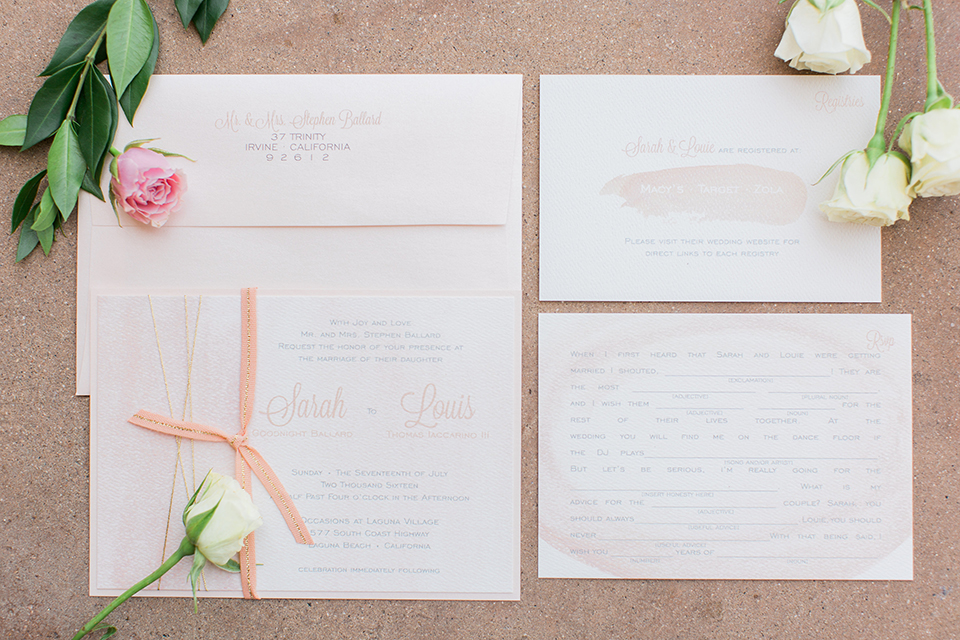 Mr. & Mrs. Stephen Ballard
37 TRINITY
IRVINE • CALIFORNIA
92612
With Joy and Love
Mr. and Mrs. Stephen Ballard
Request the honor of your presence at
the marriage of their daughter
Sarah to Louis
Goodnight Ballard Thomas Iaccarino III
Sunday • The Seventeenth of July
Two Thousand Sixteen
Half Past Four o'clock in the Afternoon
Occasions at Laguna Village
577 South Coast Highway
Laguna Beach • California
celebration immediately following
Registries
Sarah & Louie are registered at
Macy's • Target • Zola
Please visit their wedding website for
direct links to each registry
Rsvp
When I first heard that Sarah and Louie were getting
married I shouted, They are
(exclamation)
the most
(adjective) (plural noun)
and I wish them for the
(adjective) (noun)
rest of their lives together. At the
wedding you will find me on the dance floor if
the DJ plays
(song and/or artist)
But let's be serious, I'm really going for the
What is my
(insert honesty here)
advice for the couple? Sarah, you
(adjective)
should always Louie, you should
(useful advice)
never With that being said, I
(useful advice)
wish you years of
(number)